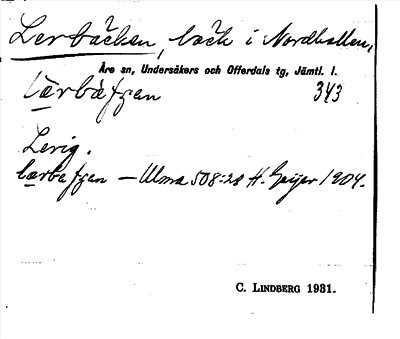 Lerbäcken, bäck i Nordhallen,
Åre sn, Undersåkers och Offerdals tg, Jämtl. l.
lærbæʃʒan 343
Lerig.
lærbæʃʒan — Ulma 508:28 H. Geijer 1904.
C. LINDBERG 1931.